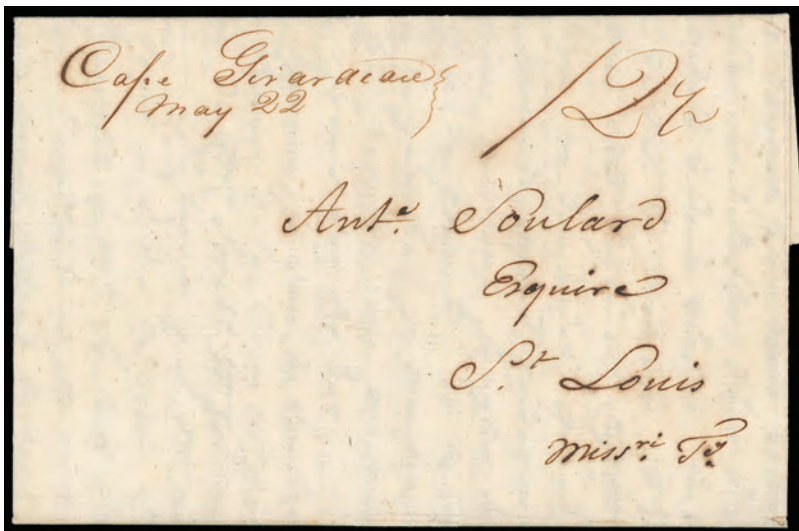 Cape Girardeau
May 22
12½
Ante. Soulard
Esquire
St. Louis
Missri. Ty.